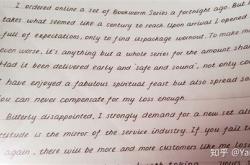 I ordered online a set of Bookworm Series a fortnight ago. But i
takes what seemed like a century to reach. Upon arrival I opened
full of expectations, only to find unpackage workout. To make m
even worse, it's anything but a whole series for the amount shar
Had it been delivered early and "safe and sound", not only co
I have enjoyed a fabulous spiritual feast but also spread so
You can never compensate for my loss enough.
Butterly disappointed, I strongly demand for a new set al
titude is the mirror of the service industry. If you fail t
again, there will be more and more customers like me los
知乎 @Ya